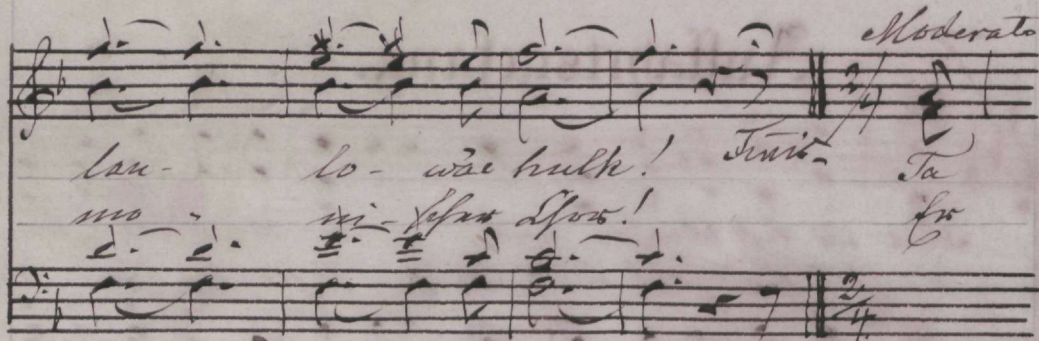 Moderato
lau- lo- wäe hulk! Ta
mo - ni-scher Chor! Er